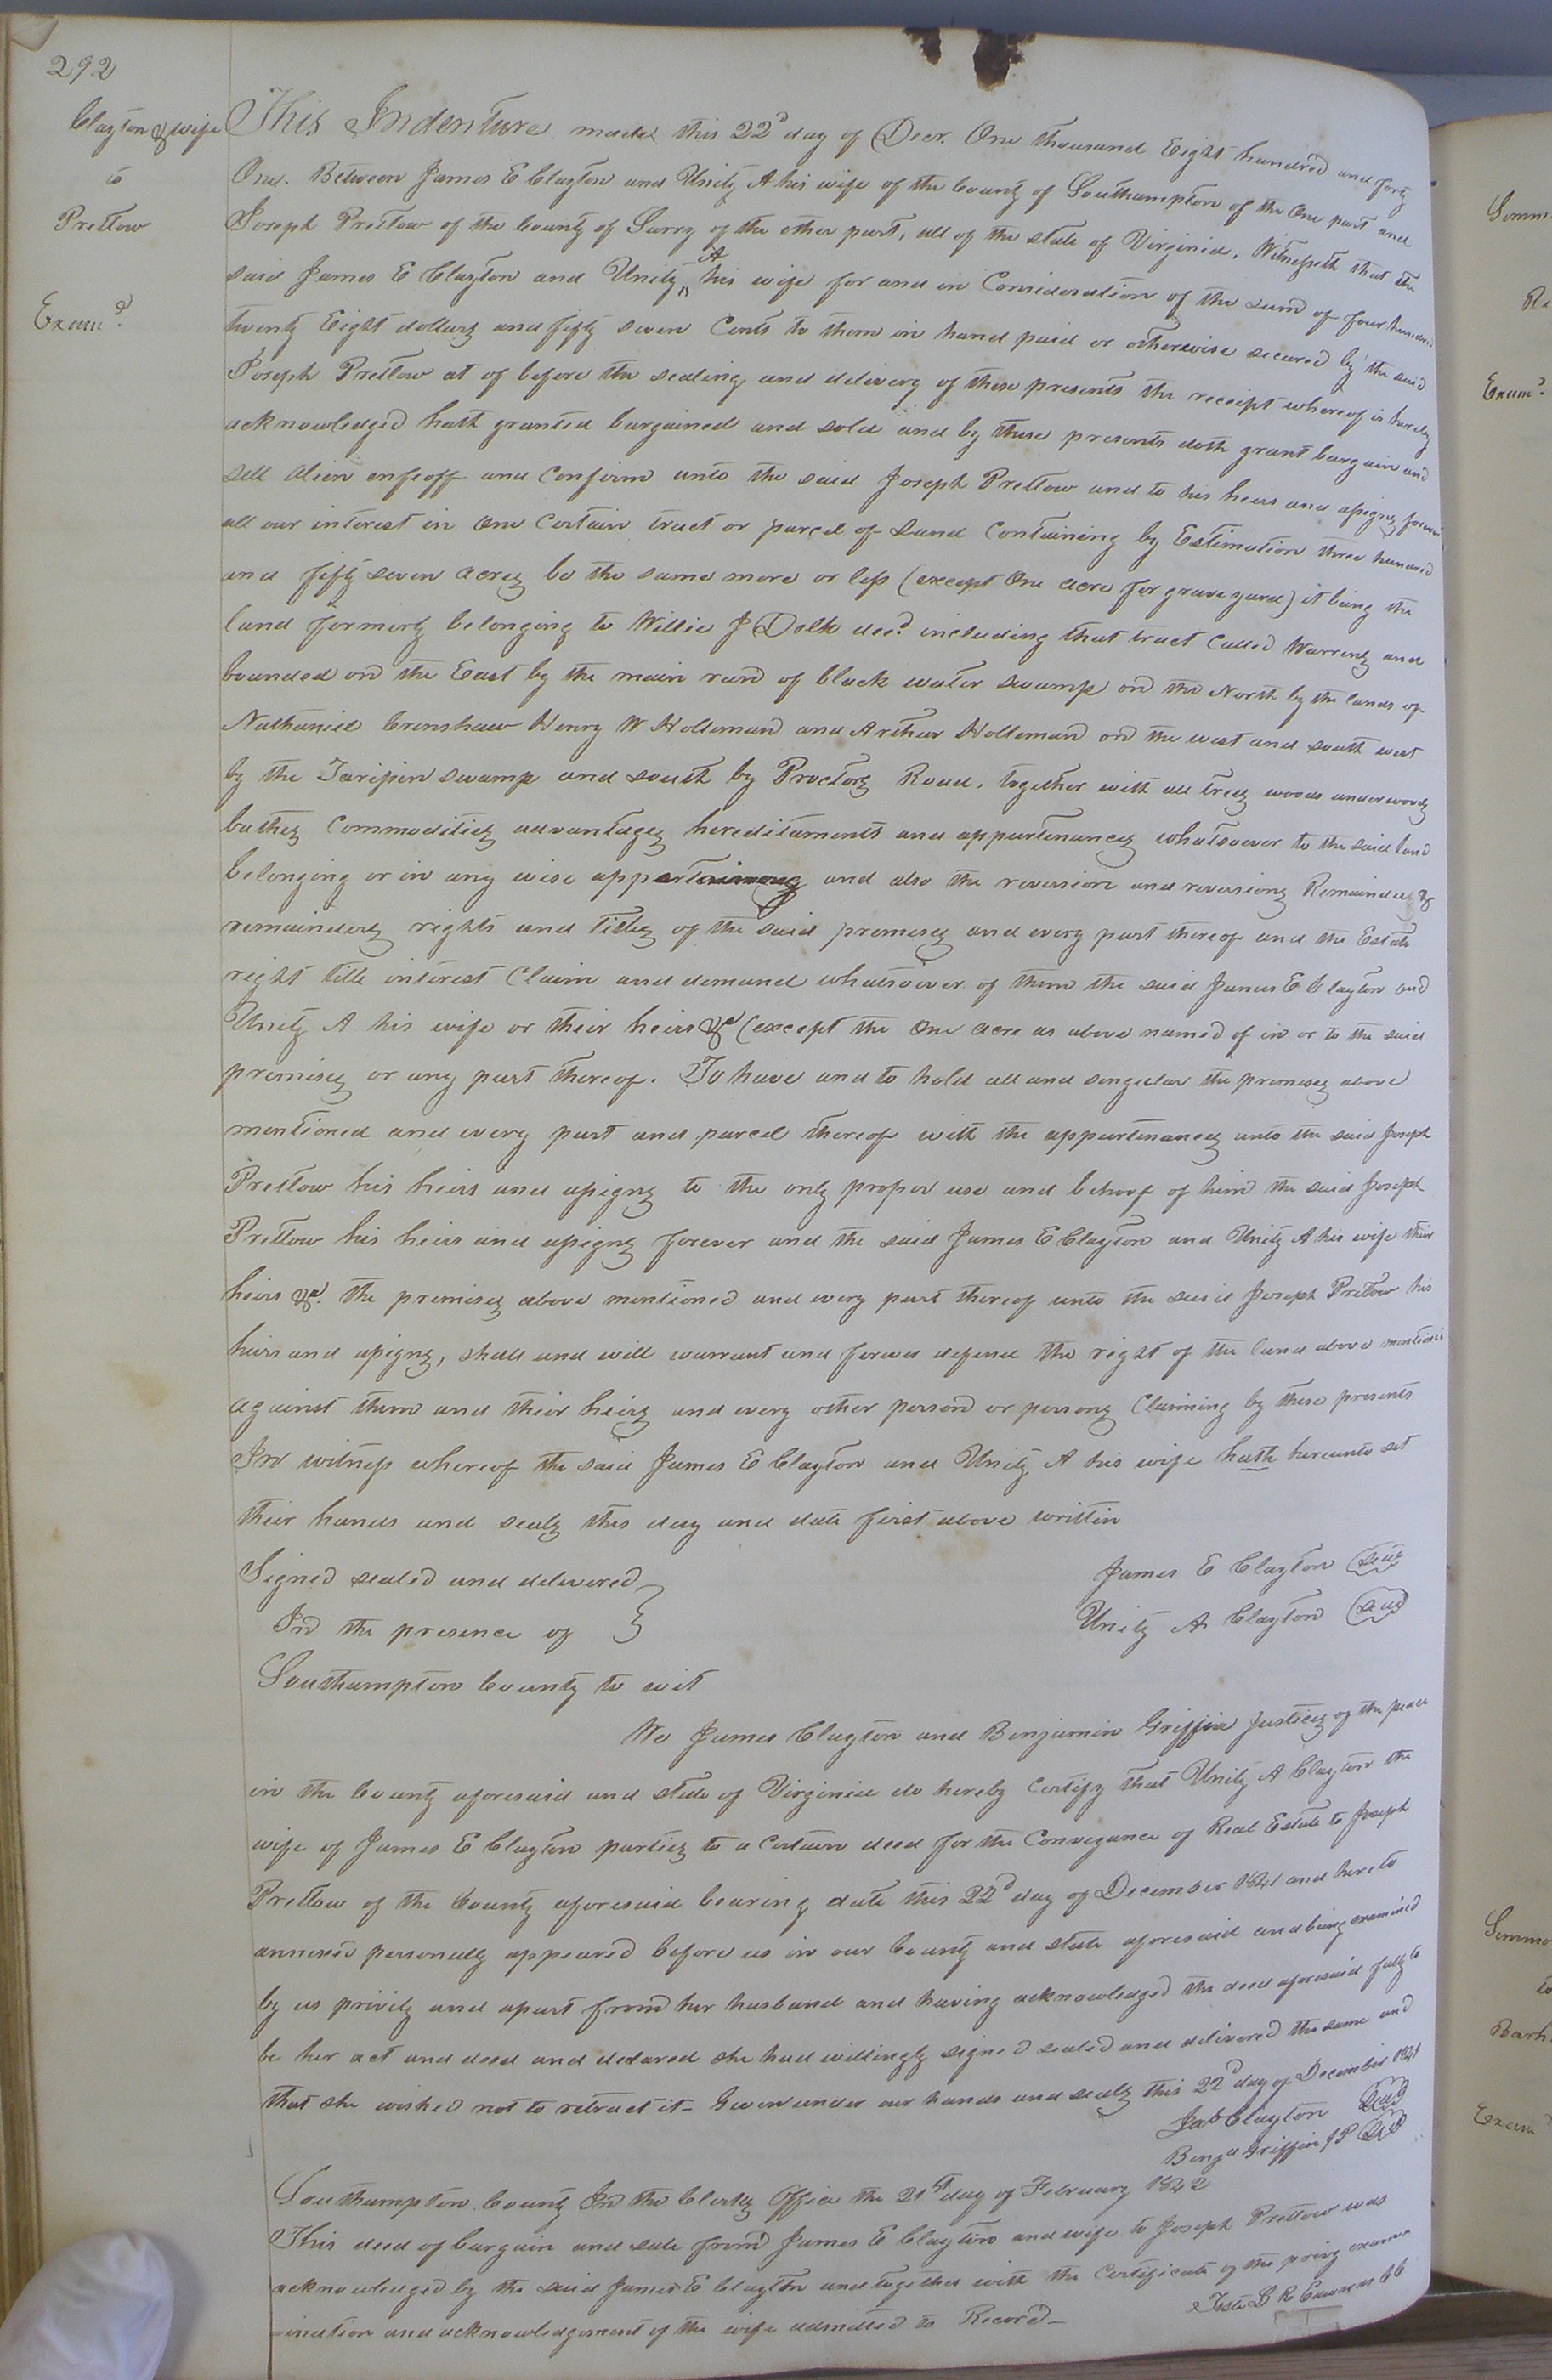 292
Clayton & wife
to
Pretlow
Exam.d
This Indenture made this 22d day of Decr. One thousand Eight hundred and forty
One. Between James E Clayton and Unity A his wife of the County of Southampton of the One part and
Joseph Pretlow of the County of Surry of the other part, all of the state of Virginia, Witnesseth that the
said James E Clayton and Unity A his wife for and in Consideration of the sum of four hundred
twenty Eight dollars and fifty seven Cents to them in hand paid or otherwise secured by the said
Joseph Pretlow at of before the sealing and delivery of these presents the receipt whereof is hereby
acknowledged hath granted bargained and sold and by these presents doth grant bargain and
sell alien enfeoff and Confirm unto the said Joseph Pretlow and to his heirs and assigns forever
all our interest in One Certain tract or parcel of Land Containing by Estimation three hundred
and fifty seven acres be the same more or less (except One acre for grave yard) it being the
land formerly belonging to Willie J Delk decd. including that tract Called Warrens and
bounded on the East by the main run of black water swamp on the North by the lands of
Nathaniel Crenshaw Henry W Holleman and Arthur Holleman on the west and south west
by the Taripin swamp and south by Proctors Road, together with all trees woods underwoods
bathes Commodities advantages hereditaments and appurtenances whatsoever to the said land
belonging or in any wise appertaining and also the reversion and reversions Remainder &
remainders rights and titles of the said premises and every part thereof and the Estate
right title interest Claim and demand whatsoever of them the said James E Clayton and
Unity A his wife or their heirs &c (except the One acre as above named of in or to the said
premises or any part thereof. To have and to hold all and singular the premises above
mentioned and every part and parcel thereof with the appurtenances unto the said Joseph
Pretlow his heirs and assigns to the only proper use and behoof of him the said Joseph
Pretlow his heirs and assigns forever and the said James E Clayton and Unity A his wife their
heirs &c. the premises above mentioned and every part thereof unto the said Joseph Pretlow his
heirs and assigns, shall and will warrant and forever defend the right of the land above mentioned
against them and their heirs and every other person or persons Claiming by these presents
In witness whereof the said James E Clayton and Unity A his wife hath hereunto set
their hands and seals this day and date first above written
Signed sealed and delivered
In the presence of
James E Clayton Seal
Unity A Clayton Seal
Southampton County to wit
We James Clayton and Benjamin Griffin Justices of the peace
in the County aforesaid and state of Virginia do hereby Certify that Unity A Clayton the
wife of James E Clayton parties to a Certain deed for the Conveyance of Real Estate to Joseph
Pretlow of the County aforesaid bearing date this 22d day of December 1841 and hereto
annexed personally appeared before us in our County and state aforesaid and being examined
by us privily and apart from her husband and having acknowledged the deed aforesaid fully to
be her act and deed and declared she had willingly signed sealed and delivered the same and
that she wished not to retract it - Given under our hands and seals this 22d day of December 1841
Jas Clayton Seal
Benja Griffin JP Seal
Southampton County In the Clerks Office the 21st day of February 1842
This deed of bargain and sale from James E Clayton and wife to Joseph Pretlow was
acknowledged by the said James E Clayton and together with the Certificate of the privy exam-
ination and acknowledgement of the wife admitted to Record -
Teste L R Edwards CC
Exam.d
to
Barh
Exam